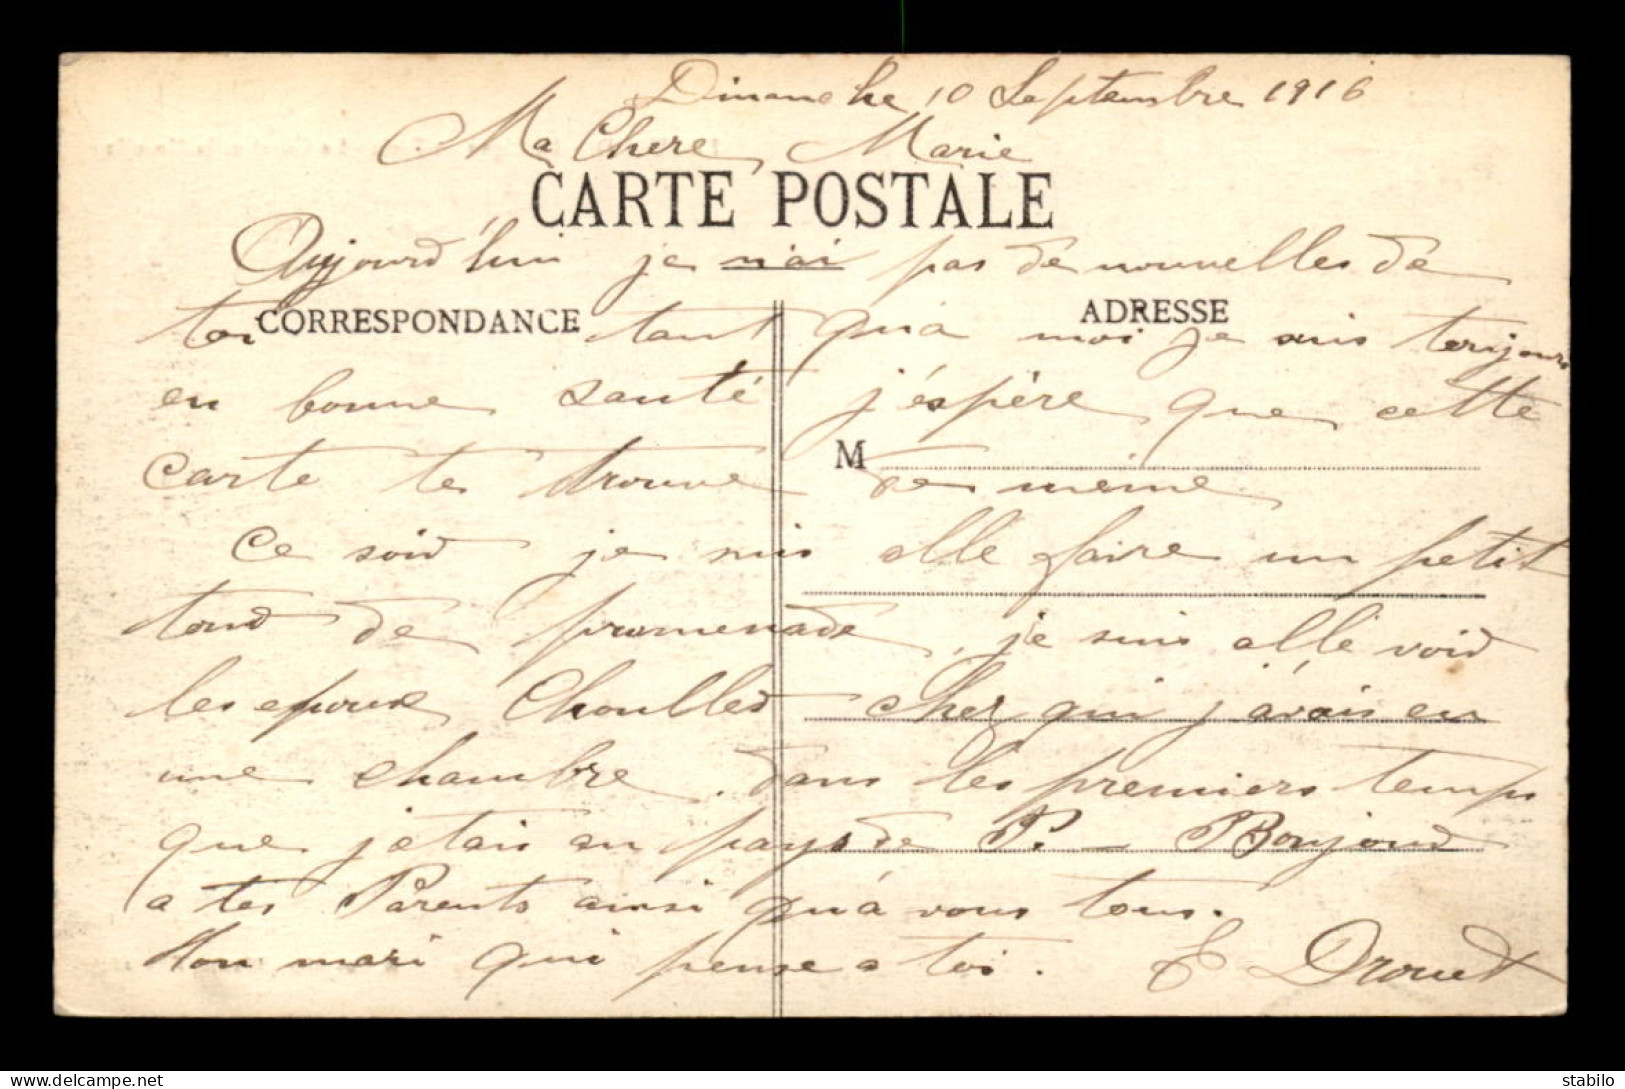 Dimanche 10 Septembre 1916
Ma Chere Marie
CARTE POSTALE
Aujourd'hui je n'ai pas de nouvelles de
CORRESPONDANCE
ADRESSE
toi tant qu'a moi je suis toujours
en bonne santé j'éspère que cette
M
carte te trouve de meme
Ce soir je suis allé faire un petit
tour de promenade, je suis allé voir
les epoux chez qui j'avais eu
une chambre dans les premiers temps
que j'etais au pays de P. — Bonjour
a tes Parents ainsi qu'a vous tous.
ton mari qui pense a toi. E Drouet
stabilo